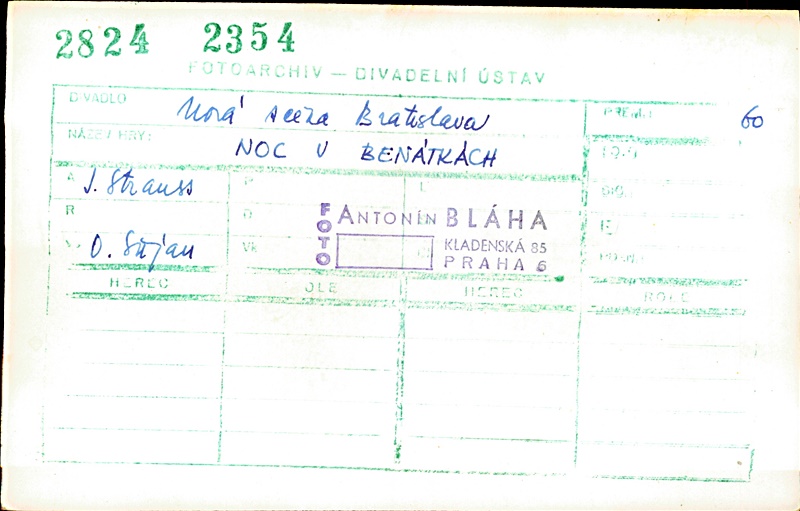 2824 2354
FOTOARCHIV — DIVADELNÍ ÚSTAV
DIVADLO Nová scéna Bratislava
NÁZEV HRY: NOC V BENÁTKÁCH
60
A J. Strauss P L
R
FOTO ANTONÍN BLÁHA
KLADENSKÁ 85
PRAHA 6
HEREC OLE HEREC ROLE